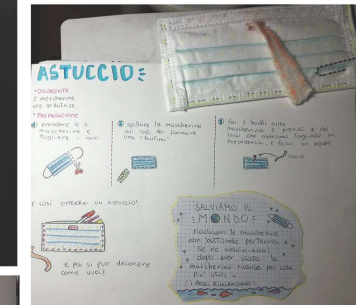 ASTUCCIO:
• OCCORRENTE
2 mascherine
una spillatrice
• PREPARAZIONE
1 prendere le 2
mascherine e
togliere i lacci
2 spillare le mascherine
sui lati per formare
una "bustina"
3 fai 2 buchi sulla
mascherina e prendi
lacci che abbiamo tagliato in
precedenza, e facci un nodo
E COSÌ OTTERRAI UN ASTUCCIO!
e poi si può decorare
come vuoi!
SALVIAMO IL
MONDO
ricicliamo le mascherine
non buttiamole per terra
dopo aver usato la
mascherina riusala per cose
più utili